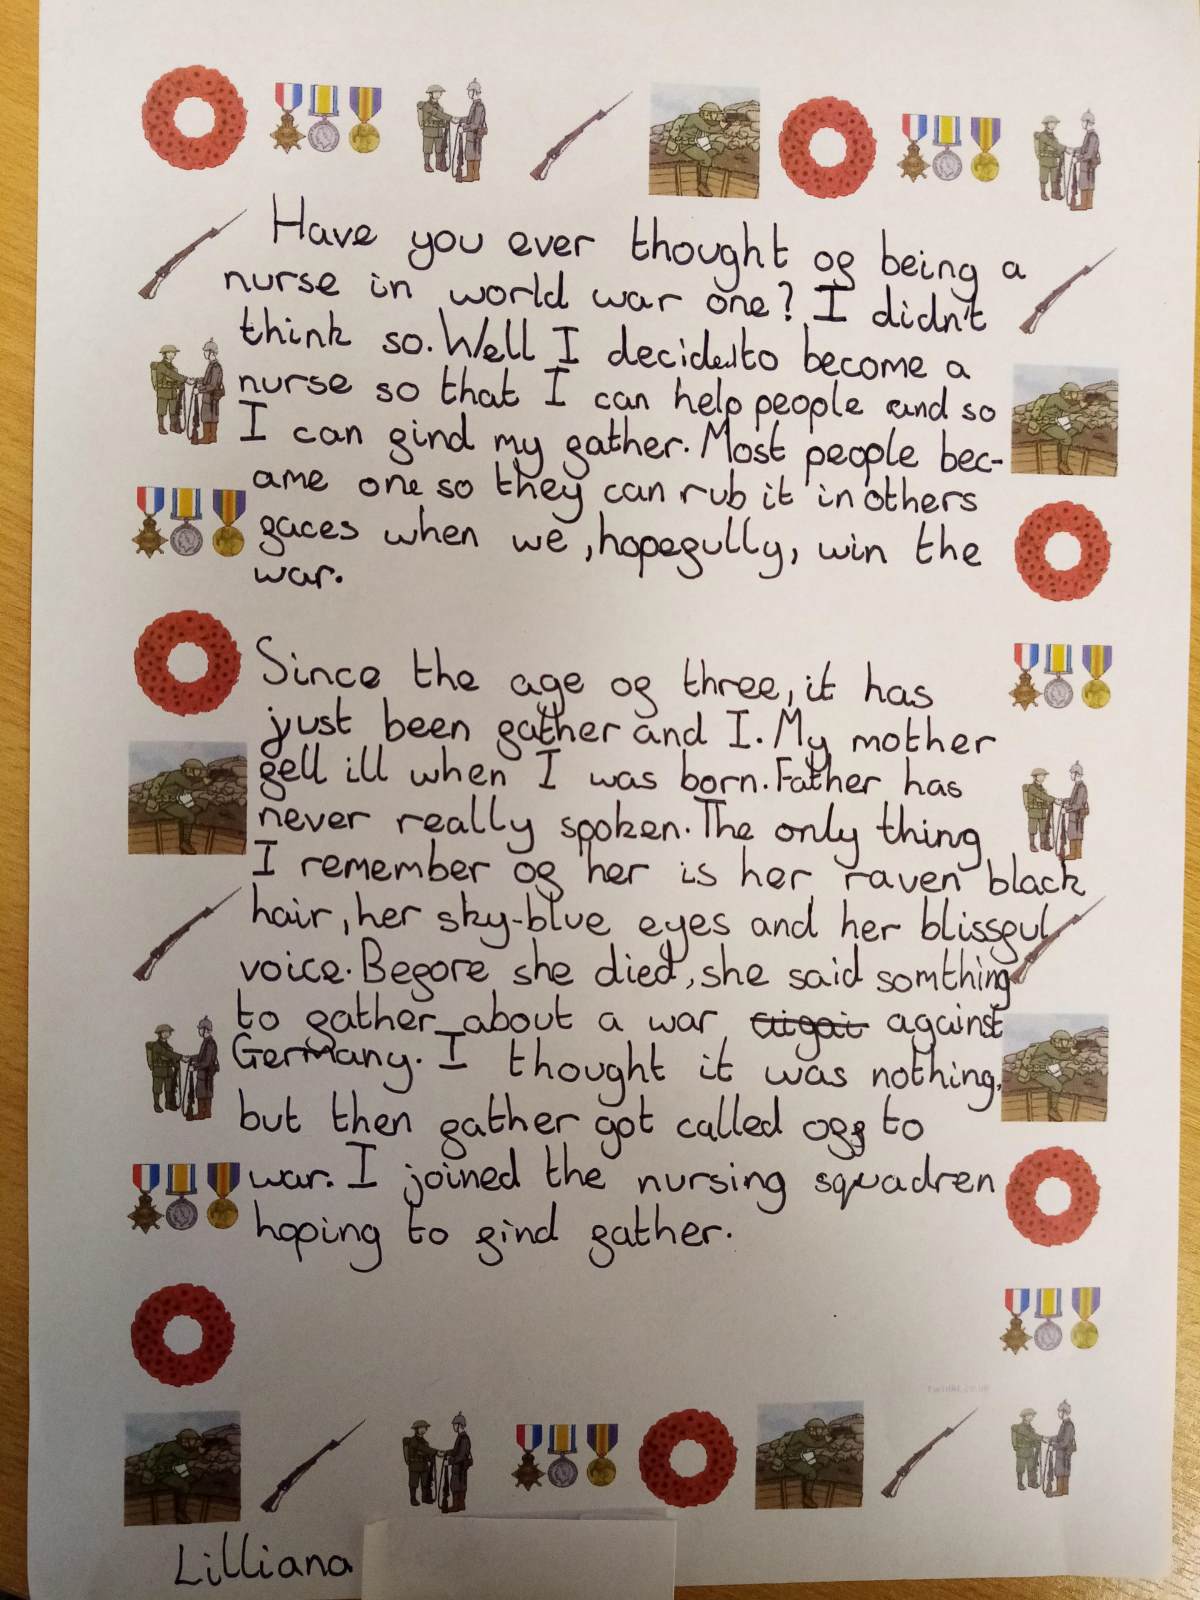 Have you ever thought of being a
nurse in world war one? I didn't
think so. Well I decided to become a
nurse so that I can help people and so
I can find my father. Most people bec-
ame one so they can rub it in others
faces when we, hopefully, win the
war.
Since the age of three, it has
just been father and I. My mother
fell ill when I was born. Father has
never really spoken. The only thing
I remember of her is her raven black
hair, her sky-blue eyes and her blissful
voice. Before she died, she said somthing
to father about a war aigai against
Germany. I thought it was nothing,
but then father got called off to
war. I joined the nursing squadren
hoping to find father.
twinkl.co.uk
Lilliana